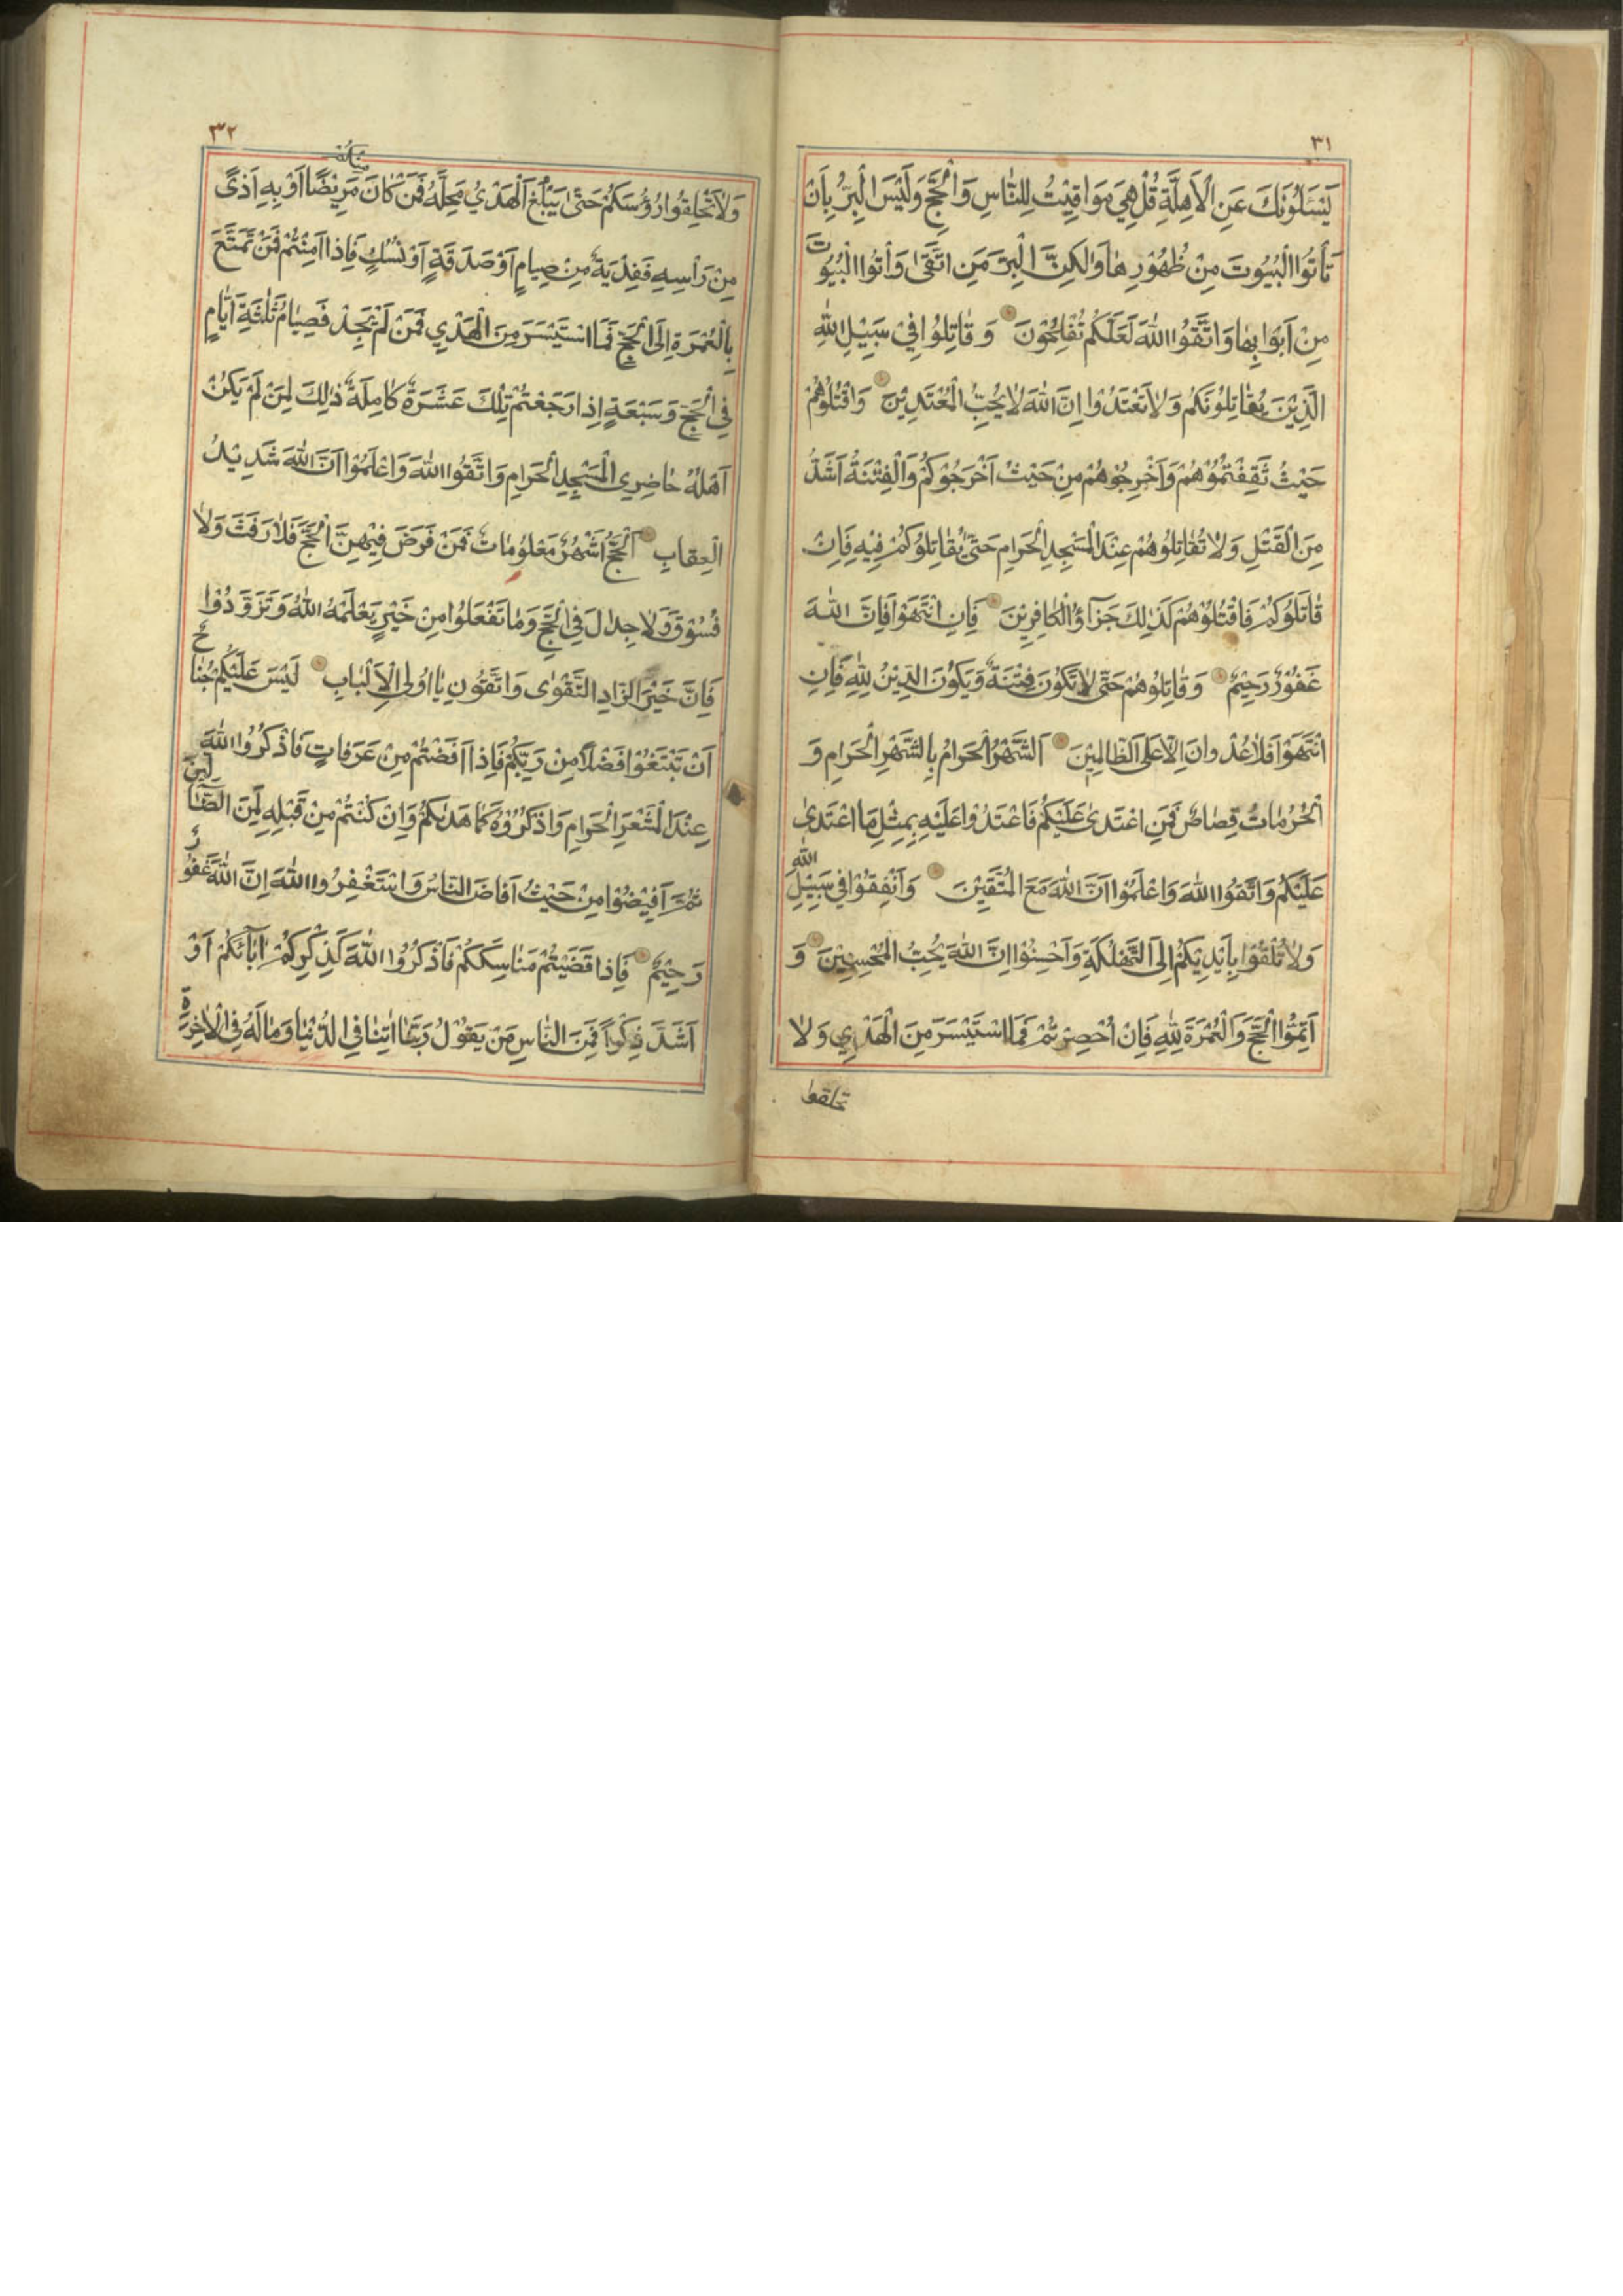 ٣١
يَسْئَلُونَكَ عَنِ الْاَهِلَّةِ قُلْ هِيَ مَوَاقِيْتُ لِلنَّاسِ وَالْحَجِّ وَلَيْسَ الْبِرُّ بِاَنْ
تَأْتُوا الْبُيُوتَ مِنْ ظُهُوْرِهَا وَلٰكِنَّ الْبِرَّ مَنِ اتَّقٰى وَأْتُوا الْبُيُوتَ
مِنْ اَبْوَابِهَا وَاتَّقُوا اللّٰهَ لَعَلَّكُمْ تُفْلِحُوْنَ وَقَاتِلُوا فِيْ سَبِيْلِ اللّٰهِ
الَّذِيْنَ يُقَاتِلُوْنَكُمْ وَلَا تَعْتَدُوْا اِنَّ اللّٰهَ لَا يُحِبُّ الْمُعْتَدِيْنَ وَاقْتُلُوْهُمْ
حَيْثُ ثَقِفْتُمُوْهُمْ وَاَخْرِجُوْهُمْ مِنْ حَيْثُ اَخْرَجُوْكُمْ وَالْفِتْنَةُ اَشَدُّ
مِنَ الْقَتْلِ وَلَا تُقَاتِلُوْهُمْ عِنْدَ الْمَسْجِدِ الْحَرَامِ حَتّٰى يُقَاتِلُوْكُمْ فِيْهِ فَاِنْ
قَاتَلُوْكُمْ فَاقْتُلُوْهُمْ كَذٰلِكَ جَزَآؤُ الْكَافِرِيْنَ فَاِنِ انْتَهَوْا فَاِنَّ اللّٰهَ
غَفُوْرٌ رَحِيْمٌ وَقَاتِلُوْهُمْ حَتّٰى لَا تَكُوْنَ فِتْنَةٌ وَيَكُوْنَ الدِّيْنُ لِلّٰهِ فَاِنِ
انْتَهَوْا فَلَا عُدْوَانَ اِلَّا عَلَى الظَّالِمِيْنَ اَلشَّهْرُ الْحَرَامُ بِالشَّهْرِ الْحَرَامِ وَ
الْحُرُمَاتُ قِصَاصٌ فَمَنِ اعْتَدٰى عَلَيْكُمْ فَاعْتَدُوْا عَلَيْهِ بِمِثْلِ مَا اعْتَدٰى
عَلَيْكُمْ وَاتَّقُوا اللّٰهَ وَاعْلَمُوْا اَنَّ اللّٰهَ مَعَ الْمُتَّقِيْنَ وَاَنْفِقُوْا فِي سَبِيْلِ اللّٰهِ
وَلَا تُلْقُوْا بِاَيْدِيْكُمْ اِلَى التَّهْلُكَةِ وَاَحْسِنُوْا اِنَّ اللّٰهَ يُحِبُّ الْمُحْسِنِيْنَ وَ
اَتِمُّوا الْحَجَّ وَالْعُمْرَةَ لِلّٰهِ فَاِنْ اُحْصِرْتُمْ فَمَا اسْتَيْسَرَ مِنَ الْهَدْيِ وَلَا
تحلقوا
٣٢
وَلَا تَحْلِقُوا رُؤُسَكُمْ حَتّٰى يَبْلُغَ الْهَدْيُ مَحِلَّهُ فَمَنْ كَانَ مِنْكُمْ مَرِيْضًا اَوْ بِهِ اَذًى
مِنْ رَأْسِهِ فَفِدْيَةٌ مِنْ صِيَامٍ اَوْ صَدَقَةٍ اَوْ نُسُكٍ فَاِذَا اَمِنْتُمْ فَمَنْ تَمَتَّعَ
بِالْعُمْرَةِ اِلَى الْحَجِّ فَمَا اسْتَيْسَرَ مِنَ الْهَدْيِ فَمَنْ لَمْ يَجِدْ فَصِيَامُ ثَلٰثَةِ اَيَّامٍ
فِي الْحَجِّ وَسَبْعَةٍ اِذَا رَجَعْتُمْ تِلْكَ عَشَرَةٌ كَامِلَةٌ ذٰلِكَ لِمَنْ لَمْ يَكُنْ
اَهْلُهُ حَاضِرِي الْمَسْجِدِ الْحَرَامِ وَاتَّقُوا اللّٰهَ وَاعْلَمُوْا اَنَّ اللّٰهَ شَدِيْدُ
الْعِقَابِ اَلْحَجُّ اَشْهُرٌ مَعْلُوْمَاتٌ فَمَنْ فَرَضَ فِيْهِنَّ الْحَجَّ فَلَا رَفَثَ وَلَا
فُسُوْقَ وَلَا جِدَالَ فِي الْحَجِّ وَمَا تَفْعَلُوْا مِنْ خَيْرٍ يَعْلَمْهُ اللّٰهُ وَتَزَوَّدُوْا
فَاِنَّ خَيْرَ الزَّادِ التَّقْوٰى وَاتَّقُوْنِ يَا اُولِى الْاَلْبَابِ لَيْسَ عَلَيْكُمْ جُنَاحٌ
اَنْ تَبْتَغُوْا فَضْلًا مِنْ رَبِّكُمْ فَاِذَا اَفَضْتُمْ مِنْ عَرَفَاتٍ فَاذْكُرُوا اللّٰهَ
عِنْدَ الْمَشْعَرِ الْحَرَامِ وَاذْكُرُوْهُ كَمَا هَدٰيكُمْ وَاِنْ كُنْتُمْ مِنْ قَبْلِهِ لَمِنَ الضَّآلِّيْنَ
ثُمَّ اَفِيْضُوْا مِنْ حَيْثُ اَفَاضَ النَّاسُ وَاسْتَغْفِرُوا اللّٰهَ اِنَّ اللّٰهَ غَفُوْرٌ
رَحِيْمٌ فَاِذَا قَضَيْتُمْ مَنَاسِكَكُمْ فَاذْكُرُوا اللّٰهَ كَذِكْرِكُمْ اٰبَآئَكُمْ اَوْ
اَشَدَّ ذِكْرًا فَمِنَ النَّاسِ مَنْ يَقُوْلُ رَبَّنَا اٰتِنَا فِي الدُّنْيَا وَمَا لَهُ فِي الْاٰخِرَةِ